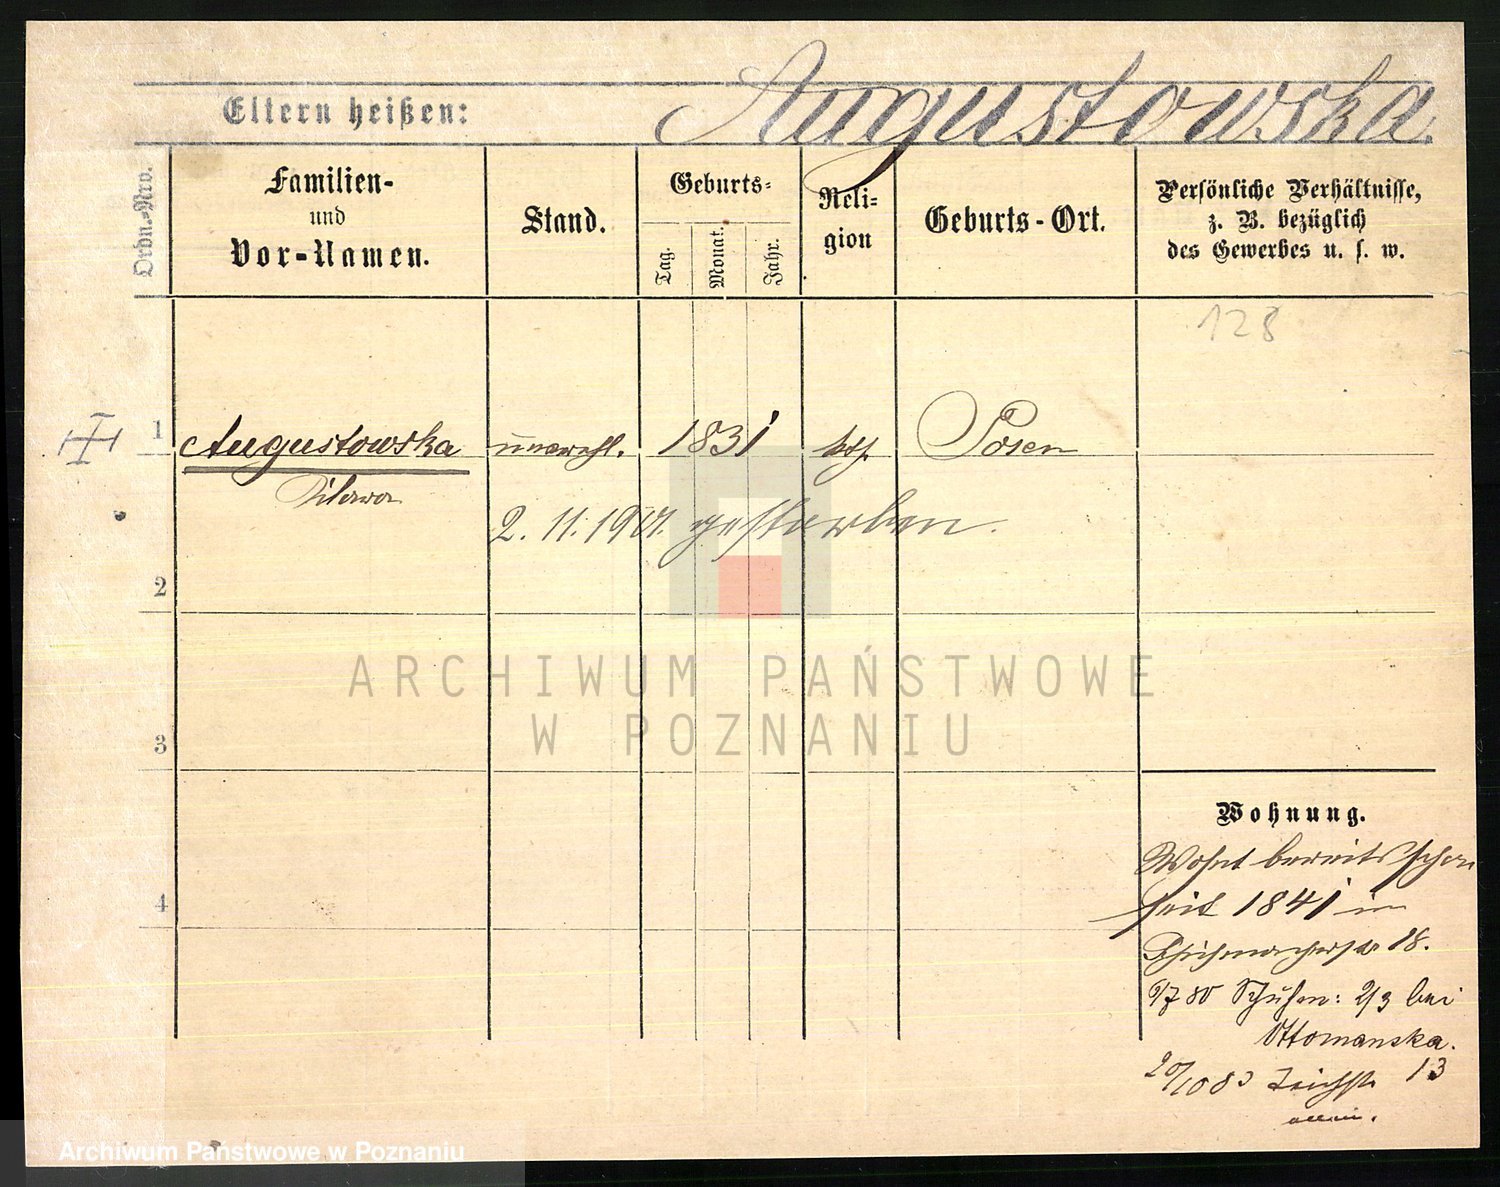 Eltern heißen: Augustowska.
Ordn.-Nro.
Familien-
und
Vor-Namen.
Stand.
Geburts-
Tag.
Monat.
Jahr.
Reli-
gion
Geburts-Ort.
Persönliche Verhältnisse,
z. B. bezüglich
des Gewerbes u. s. w.
128
1 Augustowska unverehl. 1831 kth. Posen
2. 11. 1901. gestorben.
2
3
4
ARCHIWUM PAŃSTWOWE
W POZNANIU
Wohnung.
Wohnt bereits schon
seit 1841 in
18.
80 2/3 bei
Ottomanska.
20/10 83 Teichstr 13
allein.
Archiwum Państwowe w Poznaniu